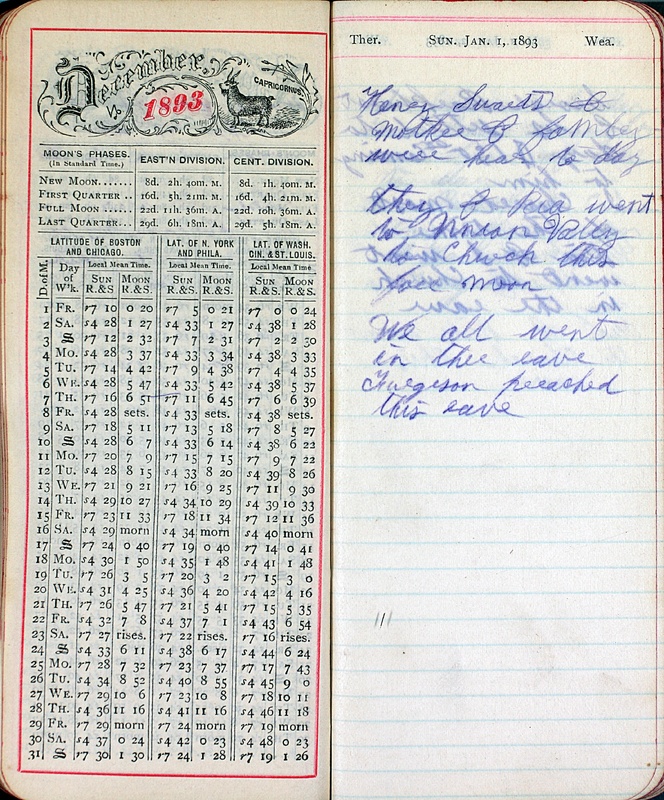 December.
1893
CAPRICORNUS.
MOON'S PHASES. (In Standard Time.) EAST'N DIVISION. CENT. DIVISION.
NEW MOON....... 8d. 2h. 40m. M. 8d. 1h. 40m. M.
FIRST QUARTER .. 16d. 5h. 21m. M. 16d. 4h. 21m. M.
FULL MOON ...... 22d. 11h. 36m. A. 22d. 10h. 36m. A.
LAST QUARTER... 29d. 6h. 18m. A. 29d. 5h. 18m. A.
LATITUDE OF BOSTON AND CHICAGO. LAT. OF N. YORK AND PHILA. LAT. OF WASH. CIN. & ST. LOUIS.
D. of M. Day of W'k. Local Mean Time. Local Mean Time. Local Mean Time
SUN R.&S. MOON R.&S. SUN R.&S. MOON R.&S. SUN R.&S. MOON R.&S.
1 FR. r7 10 0 20 r7 5 0 21 r7 0 0 24
2 SA. s4 28 1 27 s4 33 1 27 s4 38 1 28
3 S r7 12 2 32 r7 7 2 31 r7 2 2 30
4 MO. s4 28 3 37 s4 33 3 34 s4 38 3 33
5 TU. r7 14 4 42 r7 9 4 38 r7 4 4 35
6 WE. s4 28 5 47 s4 33 5 42 s4 38 5 37
7 TH. r7 16 6 51 r7 11 6 45 r7 6 6 39
8 FR. s4 28 sets. s4 33 sets. s4 38 sets.
9 SA. r7 18 5 11 r7 13 5 18 r7 8 5 27
10 S s4 28 6 7 s4 33 6 14 s4 38 6 22
11 MO. r7 20 7 9 r7 15 7 15 r7 9 7 22
12 TU. s4 28 8 15 s4 33 8 20 s4 39 8 26
13 WE. r7 21 9 21 r7 16 9 25 r7 11 9 30
14 TH. s4 29 10 27 s4 34 10 29 s4 39 10 33
15 FR. r7 23 11 33 r7 18 11 34 r7 12 11 36
16 SA. s4 29 morn s4 34 morn s4 40 morn
17 S r7 24 0 40 r7 19 0 40 r7 14 0 41
18 MO. s4 30 1 50 s4 35 1 48 s4 41 1 48
19 TU. r7 26 3 5 r7 20 3 2 r7 15 3 0
20 WE. s4 31 4 25 s4 36 4 20 s4 42 4 16
21 TH. r7 26 5 47 r7 21 5 41 r7 15 5 35
22 FR. s4 32 7 8 s4 37 7 1 s4 43 6 54
23 SA. r7 27 rises. r7 22 rises. r7 16 rises.
24 S s4 33 6 11 s4 38 6 17 s4 44 6 24
25 MO. r7 28 7 32 r7 23 7 37 r7 17 7 43
26 TU. s4 34 8 52 s4 40 8 55 s4 45 9 0
27 WE. r7 29 10 6 r7 23 10 8 r7 18 10 11
28 TH. s4 36 11 16 s4 41 11 16 s4 46 11 18
29 FR. r7 29 morn r7 24 morn r7 19 morn
30 SA. s4 37 0 24 s4 42 0 23 s4 48 0 23
31 S r7 30 1 30 r7 24 1 28 r7 19 1 26
Ther. SUN. JAN. 1, 1893 Wea.
Henry &
Mother & family
were hear to day
they & went
to Union Vally
to Chuch this
fore moon
We all went
in thee eave
Furgeson preached
this eave